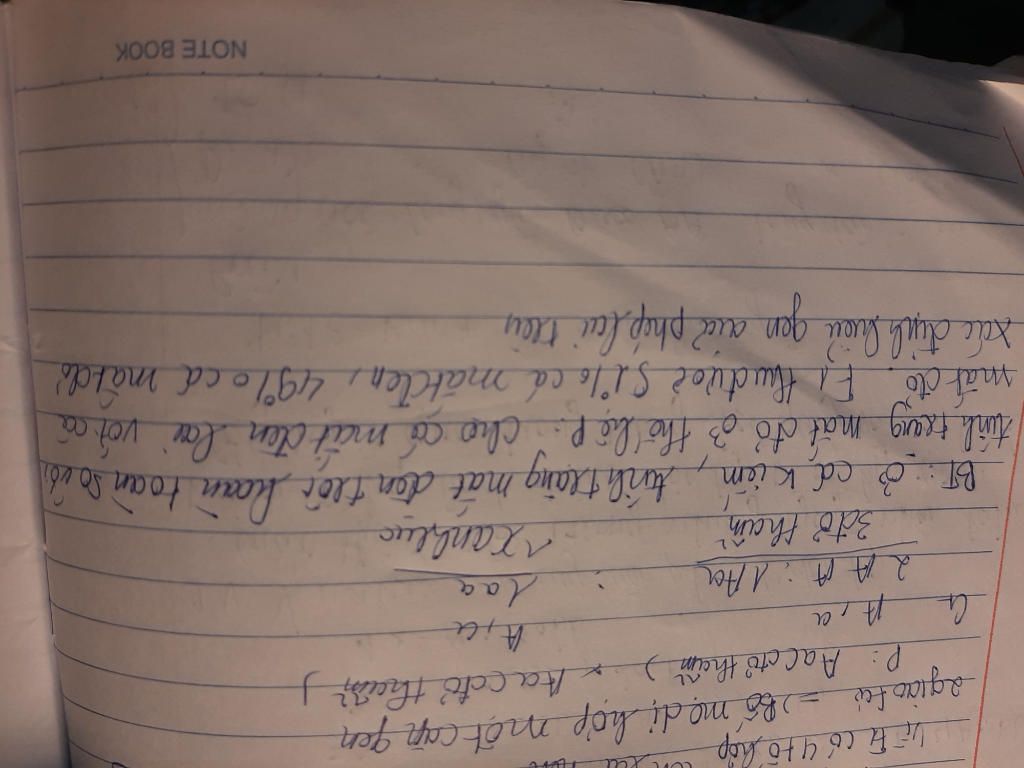 Vì F1 có 4 tổ hợp
2 giao tử => Bố mẹ dị hợp một cặp gen
P: Aa (đỏ thẫm) x Aa (đỏ thẫm)
G A, a A, a
2 A A : 1 Aa : 1 aa
3 đỏ thẫm 1 xanh lục
BT: ở cá kiếm, tính trạng mắt đen trội hoàn toàn so với
tính trạng mắt đỏ ở thế hệ P: cho cá mắt đen lai với cá
mắt đỏ. F1 thu được 51% cá mắt đen, 49% cá mắt đỏ
xác định kiểu gen của phép lai trên
NOTE BOOK